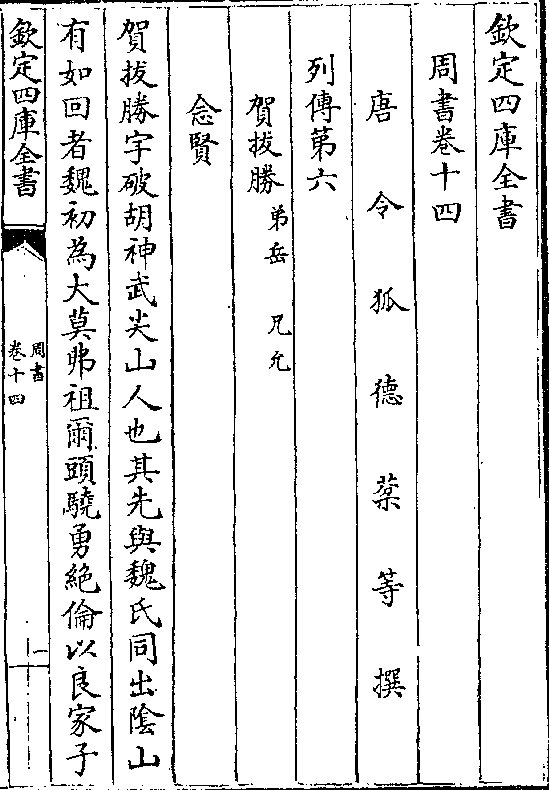 欽定四庫全書
周書卷十四
唐令狐德棻等撰
列傳第六
賀拔勝 弟岳 兄允
念賢
賀拔勝字破胡神武尖山人也其先與魏氏同出陰山
有如回者魏初為大莫弗祖爾頭驍勇絶倫以良家子
欽定四庫全書
周書
卷十四
一